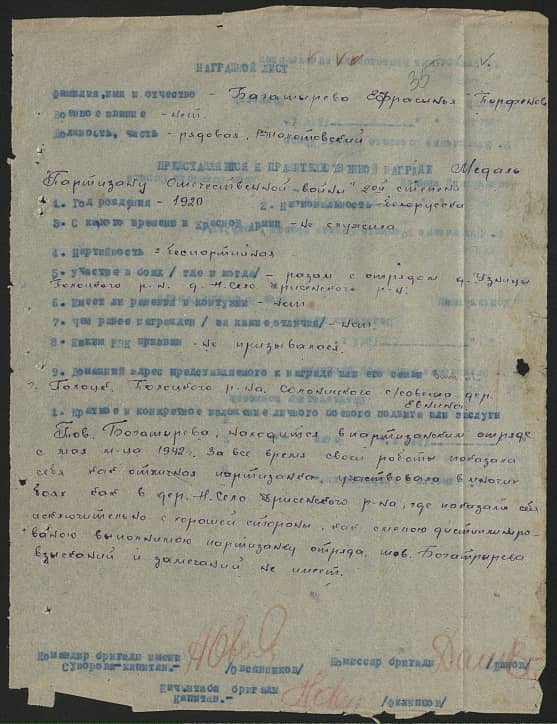 35
НАГРАДНОЙ ЛИСТ
Фамилия, имя и отчество - Богатырева Ефрасинья Парфеновна
Военное звание - нет.
Должность, часть - рядовая,
ПРЕДСТАВЛЯЕТСЯ К ПРАВИТЕЛЬСТВЕННОЙ НАГРАДЕ Медаль
"Партизану Отечественной войны" 2ой степени
1. Год рождения - 1920 2. Национальность - белорусска
3. С какого времени в Красной Армии - не служила
4. Партийность - беспартийная
5. участие в боях /где и когда/ - разом с отрядом д. Узницы
Полоцкого р-на. д. Н. Село Дрисенского р-на.
6. Имеет ли ранения и контузии - нет
7. Чем ранее награжден /за какие отличия/ - нет.
8. Каким РВК призван - не призывалася.
9. Домашний адрес представляемого к награде или его семьи
Полоцк, Полоцкого р-на, с/совета дер.
1. Краткое и конкретное изложение личного боевого подвига или заслуги
Тов. Богатырева, находится в партизанском отряде
с мая м-ца 1942. За все время своей работы показала
себя как отличная партизанка, участвовала в многих
боях как в дер. Н. Село Дрисенского р-на, где показала себя
исключительно с хорошей стороны, как смелою дисциплиниро-
ваною партизанку отряда. тов. Богатырева
взысканий и замечаний не имеет.
Командир бригады имени
Суворова-капитан.- /Овсянников/
Комиссар бригады
Начштаба бригады
Капитан.-